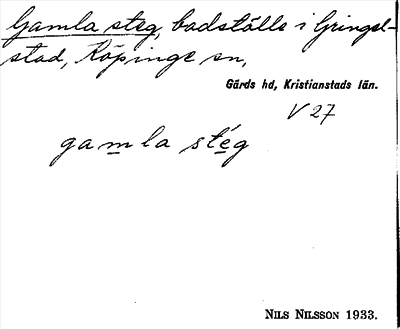 Gamla steg, badställe i Gringel-
stad, Köpinge sn,
Gärds hd, Kristianstads län.
V 27
gamla stég
NILS NILSSON 1933.